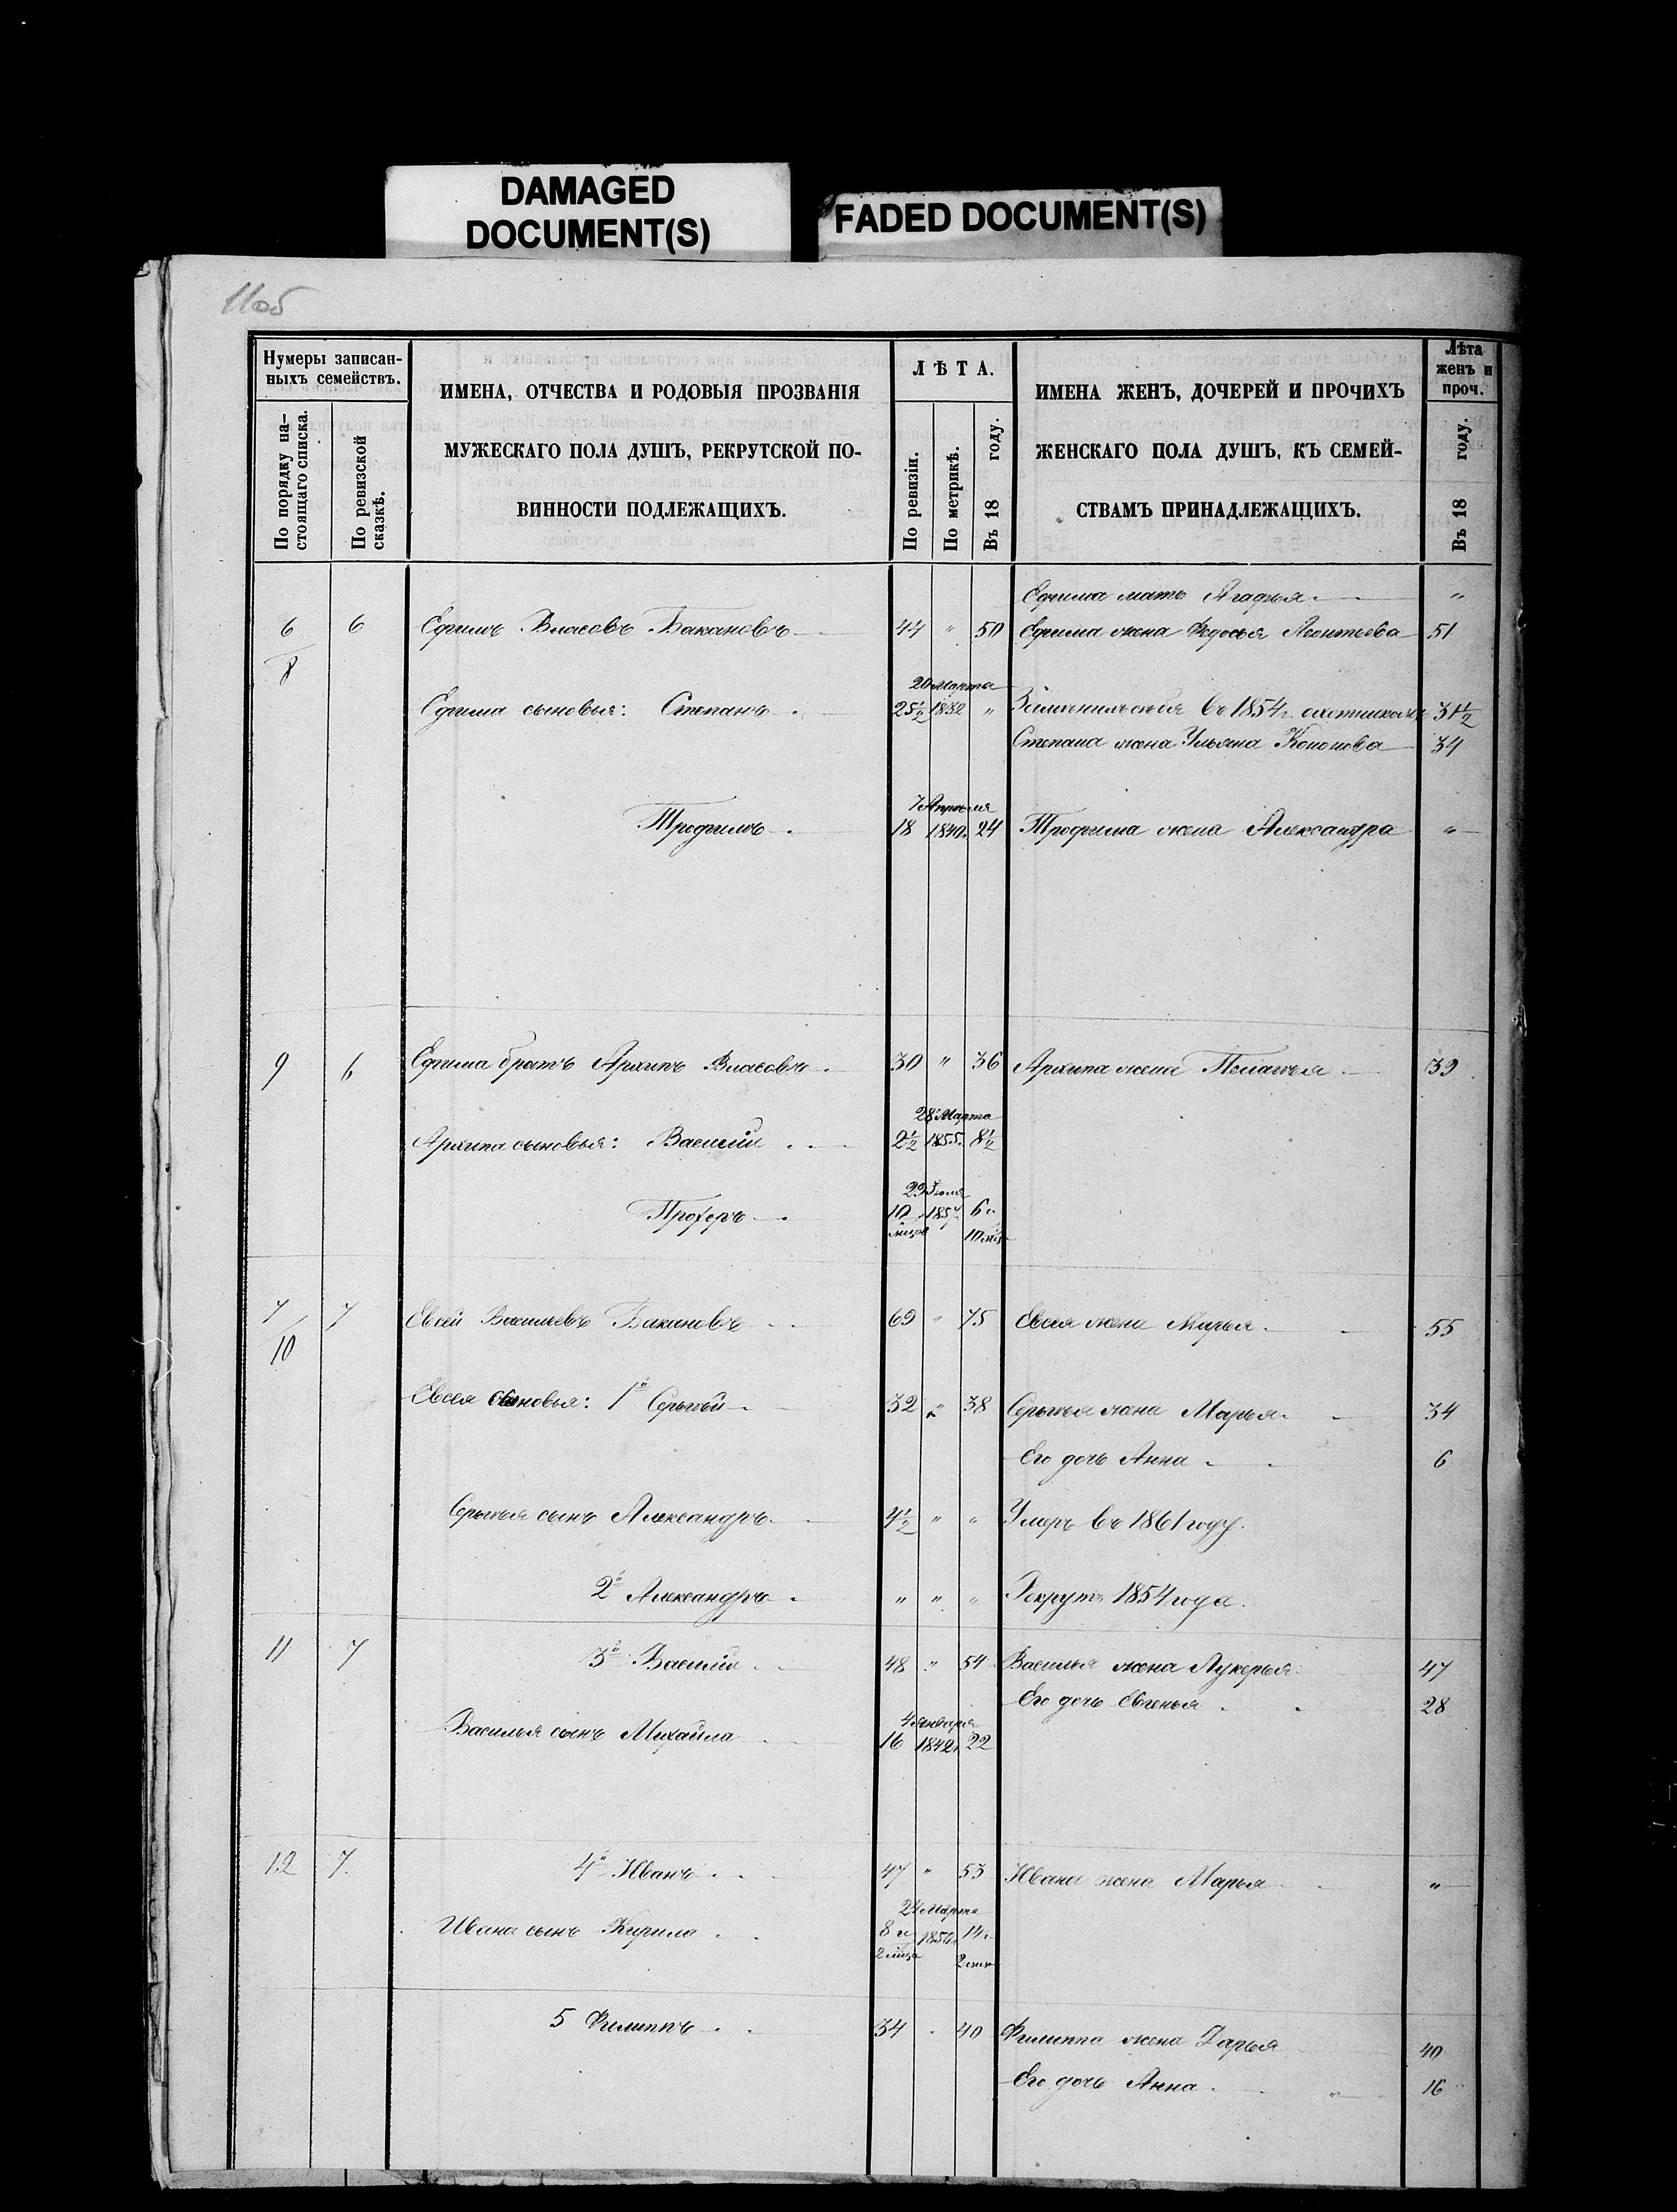 DAMAGED
DOCUMENT(S)
FADED DOCUMENT(S)
11об
Нумеры записан-
ныхъ семействъ.
По порядку на-
стоящаго списка.
По ревизской
сказкѣ.
ИМЕНА, ОТЧЕСТВА И РОДОВЫЯ ПРОЗВАНІЯ
МУЖЕСКАГО ПОЛА ДУШЪ, РЕКРУТСКОЙ ПО-
ВИННОСТИ ПОДЛЕЖАЩИХЪ.
ЛѢТА.
По ревизіи.
По метрикѣ.
Въ 18 году.
ИМЕНА ЖЕНЪ, ДОЧЕРЕЙ И ПРОЧИХЪ
ЖЕНСКАГО ПОЛА ДУШЪ, КЪ СЕМЕЙ-
СТВАМЪ ПРИНАДЛЕЖАЩИХЪ.
Лѣта
женъ и
проч.
Въ 18 году.
Ефима мать Агафья "
6 6 Ефимъ Власовъ Бакановъ 44 " 50 Ефима жена Федосья Леонтьева 51
8
20 Марта
Ефима сыновья: Степанъ 25½ 1832 " въ 1854 г. охотникомъ 31½
Степана жена Ульяна Кононова 34
7 Апрѣля
Трофимъ 18 1840 24 Трофима жена Александра "
9 6 Ефима братъ Архипъ Власовъ 30 " 36 Архипа жена Пелагея 39
28 Марта
Архипа сыновья: Василій 2½ 1855 8½
29
Прохоръ 10 185 6
10
7 7 Евсей Васильевъ Бакановъ 69 " 75 Евсея жена Марья 55
10
Евсея сыновья: 1й Сергѣй 32 " 38 Сергѣя жена Марья 34
Его дочь Анна 6
Сергѣя сынъ Александръ 4½ " " Умеръ въ 1861 году.
2й Александръ " " " Рекрутъ 1854 года.
11 7 3й Василій 48 " 54 Василья жена Лукерья 47
Его дочь Евгенья 28
4 Января
Василья сынъ Михайла 16 1842 22
12 7 4й Иванъ 47 " 53 Ивана жена Марья "
24 Марта
Ивана сынъ Кирила 8 1850 14
2 2
5 Филиппъ 34 40 Филиппа жена Дарья 40
Его дочь Анна " 16